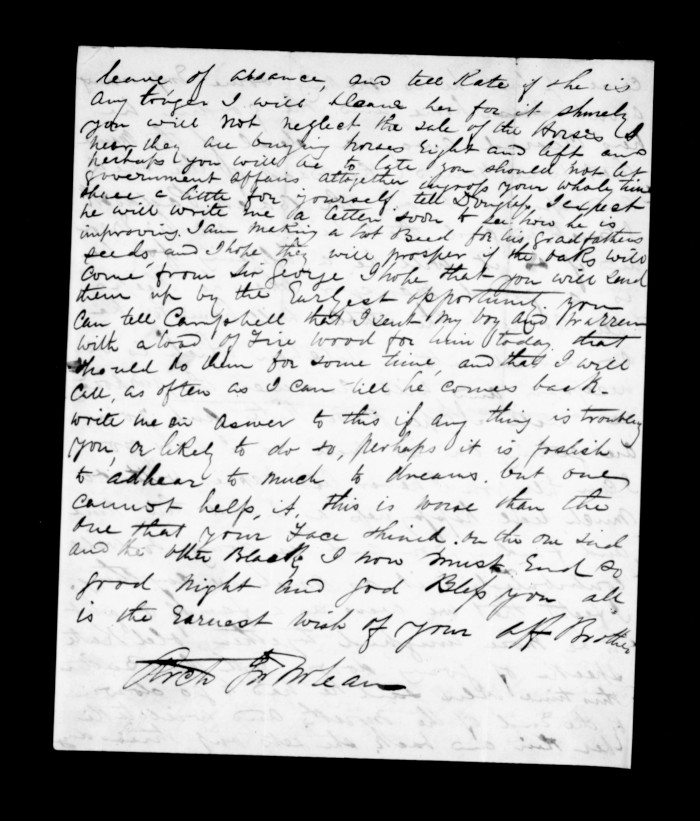 leave of absance, and tell Kate if she is
any longer I will blame her for it shurely
you will not neglect the sale of the Horses I
hear they are buying horses Eight and left and
perhaps you will be to late you should not let
government affairs altogether ingross your whole time
a little for yourself tell Douglass I expect
he will write me a letter soon to see how he is
improving. I am making a lot Beed for his Gradfathers
seeds and I hope they will prosper if the oaks will
come from Sir George I hope that you will send
them up by the Earlyest opportunity. you
can tell Campbell that I sent my boy and Warren
with a load of Fire wood for him today, that
should do them for some time, and that I will
call, as often as I can till he comes back.
write me in aswer to this if any thing is troubling
you, or likely to do so, perhaps it is foolish
to adhear to much to dreams. but one
cannot help, it, this is worse than the
one that your Face shined. on the one sid
and the other Black, I now must End so
good night and god Bless you all
is the Earnest wish of your aff Brother
Arch Jn McLean